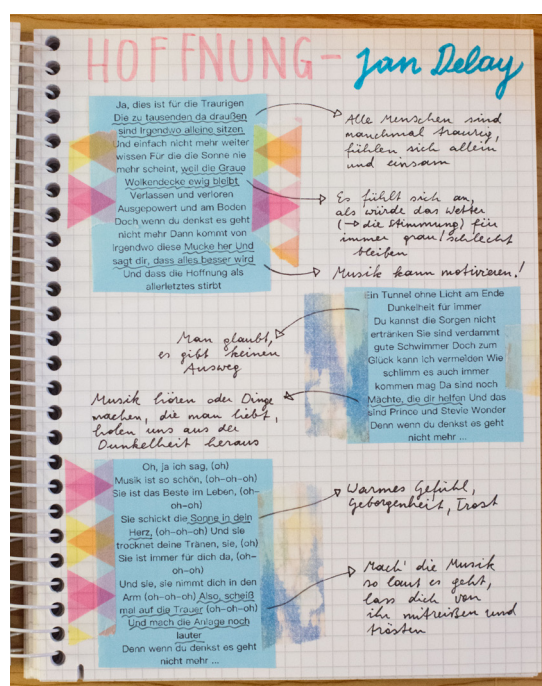 HOFFNUNG - Jan Delay
Ja, dies ist für die Traurigen
Die zu tausenden da draußen
sind Irgendwo alleine sitzen
Und einfach nicht mehr weiter
wissen Für die die Sonne nie
mehr scheint, weil die Graue
Wolkendecke ewig bleibt
Verlassen und verloren
Ausgepowert und am Boden
Doch wenn du denkst es geht
nicht mehr Dann kommt von
irgendwo diese Mucke her Und
sagt dir, dass alles besser wird
Und dass die Hoffnung als
allerletztes stirbt
Alle Menschen sind
manchmal traurig,
fühlen sich allein
und einsam
Es fühlt sich an,
als würde das Wetter
(→ die Stimmung) für
immer grau/schlecht
bleiben
Musik kann motivieren!
Ein Tunnel ohne Licht am Ende
Dunkelheit für immer
Du kannst die Sorgen nicht
ertränken Sie sind verdammt
gute Schwimmer Doch zum
Glück kann ich vermelden Wie
schlimm es auch immer
kommen mag Da sind noch
Mächte, die dir helfen Und das
sind Prince und Stevie Wonder
Denn wenn du denkst es geht
nicht mehr ...
Man glaubt,
es gibt keinen
Ausweg
Musik hören oder Dinge
machen, die man liebt,
holen uns aus der
Dunkelheit heraus
Oh, ja ich sag, (oh)
Musik ist so schön, (oh-oh-oh)
Sie ist das Beste im Leben, (oh-
oh-oh)
Sie schickt die Sonne in dein
Herz, (oh-oh-oh) Und sie
trocknet deine Tränen, sie, (oh)
Sie ist immer für dich da, (oh-
oh-oh)
Und sie, sie nimmt dich in den
Arm (oh-oh-oh) Also, scheiß
mal auf die Trauer (oh-oh-oh)
Und mach die Anlage noch
lauter
Denn wenn du denkst es geht
nicht mehr ...
Warmes Gefühl,
Geborgenheit, Trost
Mach' die Musik
so laut es geht,
lass dich von
ihr mitreißen und
trösten